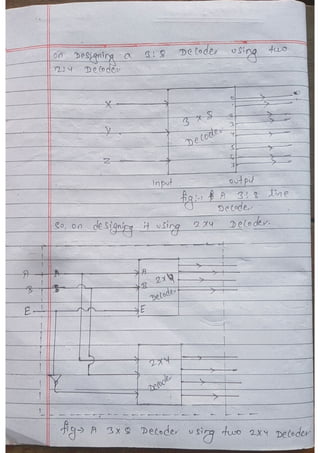 on Designing a 3:8 Decoder using two
2:4 Decoder
X
Y
Z
3 x 8
Decoder
Input
output
fig:- A 3:8 line
Decoder
So, on designing it using 2x4 Decoder.
A
A
A
B
B
B
2x4
Decoder
E
E
2x4
Decoder
fig→ A 3x8 Decoder using two 2x4 Decoder